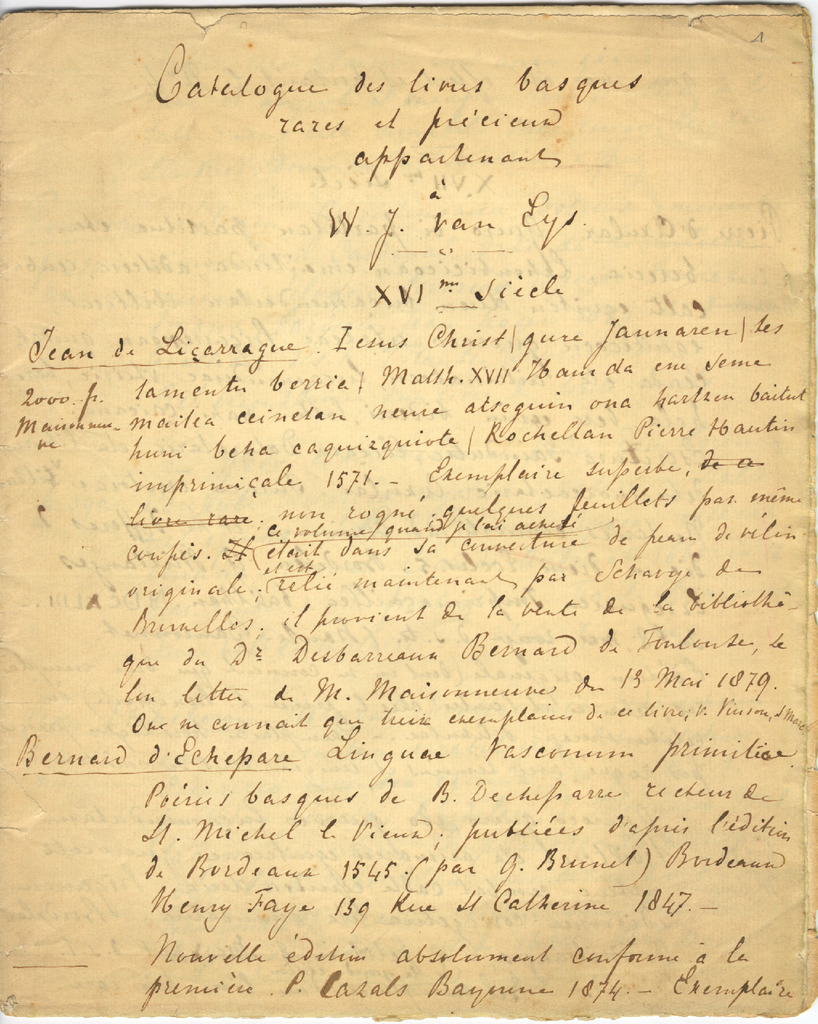 1
Catalogue des livres basques
rares et précieux
appartenant
à
W. J. van Eys.
XVI me Siècle
Jean de Liçarrague. Iesus Christ | gure Jaunaren | tes
2000 f. tamentu berria | Matth. XVII Haur da ene seme
Maisonneu- maitea ceinetan neure atseguin ona hartzen baitut
ve huni beha çaquizquiote | Rochellan Pierre Hautin
imprimiçale 1571. - Exemplaire superbe, de ce
livre rare; non rogné, quelques feuillets pas même
ce volume, quand je l'ai acheté
coupés. Il était dans sa couverture de peau de vélin
et est
originale; relié maintenant par Schavye de
Bruxelles; il provient de la vente de la bibliothè-
que du Dr Desbarreaux Bernard de Toulouse, se
lon lettre de M. Maisonneuve du 13 Mai 1879.
On ne connait que treize exemplaires de ce livre, v. Vinson,
Bernard d'Echepare Linguae Vasconum primitiae.
Poésies basques de B. Dechepare recteur de
St. Michel le Vieux; publiées d'après l'édition
de Bordeaux 1545. (par G. Brunet) Bordeaux
Henry Faye 139 Rue St Catherine 1847. -
Nouvelle édition absolument conforme à la
première. P. Cazals Bayonne 1874. - Exemplaire